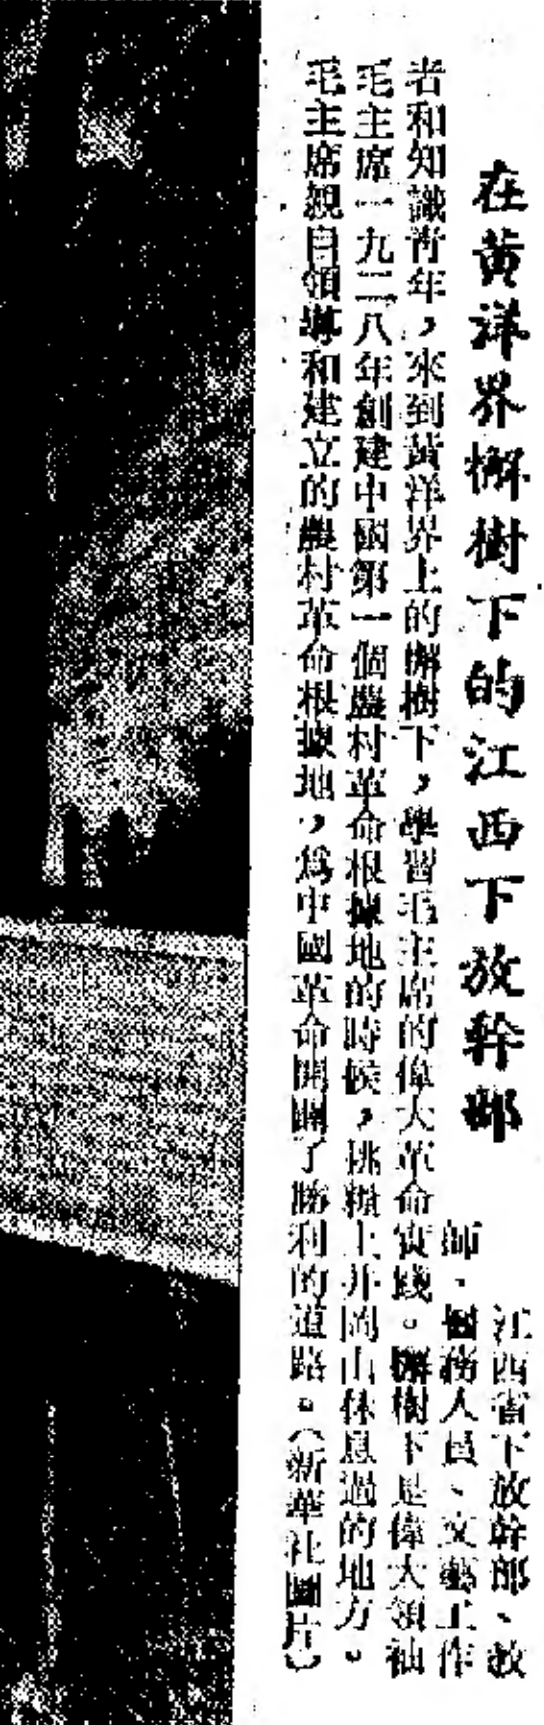 在黃洋界槲樹下的江西下放幹部
江西省下放幹部、教
師、醫務人員、文藝工作
者和知識青年，來到黃洋界上的槲樹下，學習毛主席的偉大革命實踐。槲樹下是偉大領袖
毛主席一九二八年創建中國第一個農村革命根據地的時候，挑糧上井岡山休息過的地方。
毛主席親自領導和建立的農村革命根據地，為中國革命開闢了勝利的道路。（新華社圖片）